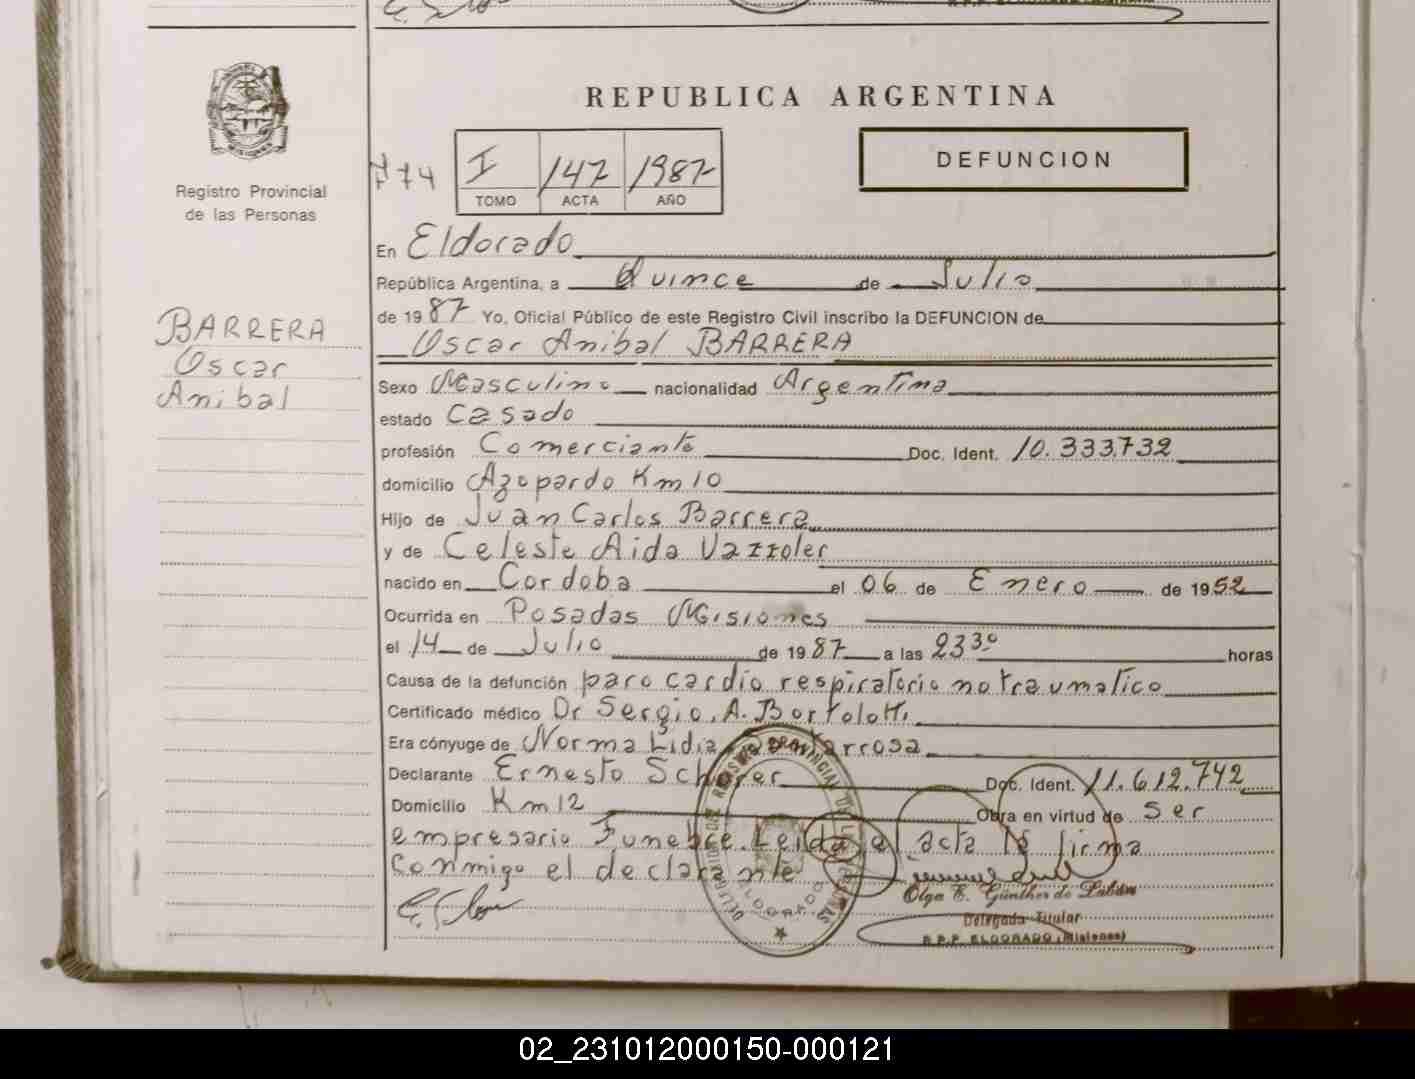 REPUBLICA ARGENTINA
DEFUNCION
Registro Provincial
de las Personas
774
I 147 1987
TOMO ACTA AÑO
En Eldorado
República Argentina, a Quince de Julio
de 1987 Yo, Oficial Público de este Registro Civil inscribo la DEFUNCION de
Oscar Anibal BARRERA
BARRERA
Oscar
Anibal
Sexo Masculino nacionalidad Argentina
estado Casado
profesión Comerciante Doc. Ident. 10.333.732
domicilio Azopardo Km 10
Hijo de Juan Carlos Barrera
y de Celeste Aida Vazzoler
nacido en Cordoba el 06 de Enero de 1952
Ocurrida en Posadas Misiones
el 14 de Julio de 1987 a las 23 30 horas
Causa de la defunción paro cardio respiratorio no traumatico
Certificado médico Dr Sergio. A. Bortolotti
Era cónyuge de Norma Lidia
Declarante Ernesto Scherer Doc. Ident. 11.612.742
Domicilio Km 12 Obra en virtud de Ser
empresario Funebre. Leida el acta la firma
conmigo el declarante
Olga E. Günther de
Delegada Titular
R.P.P. ELDORADO (Misiones)
DELEGACION DEL REGISTRO PROVINCIAL DE LAS PERSONAS
ELDORADO
02_231012000150-000121